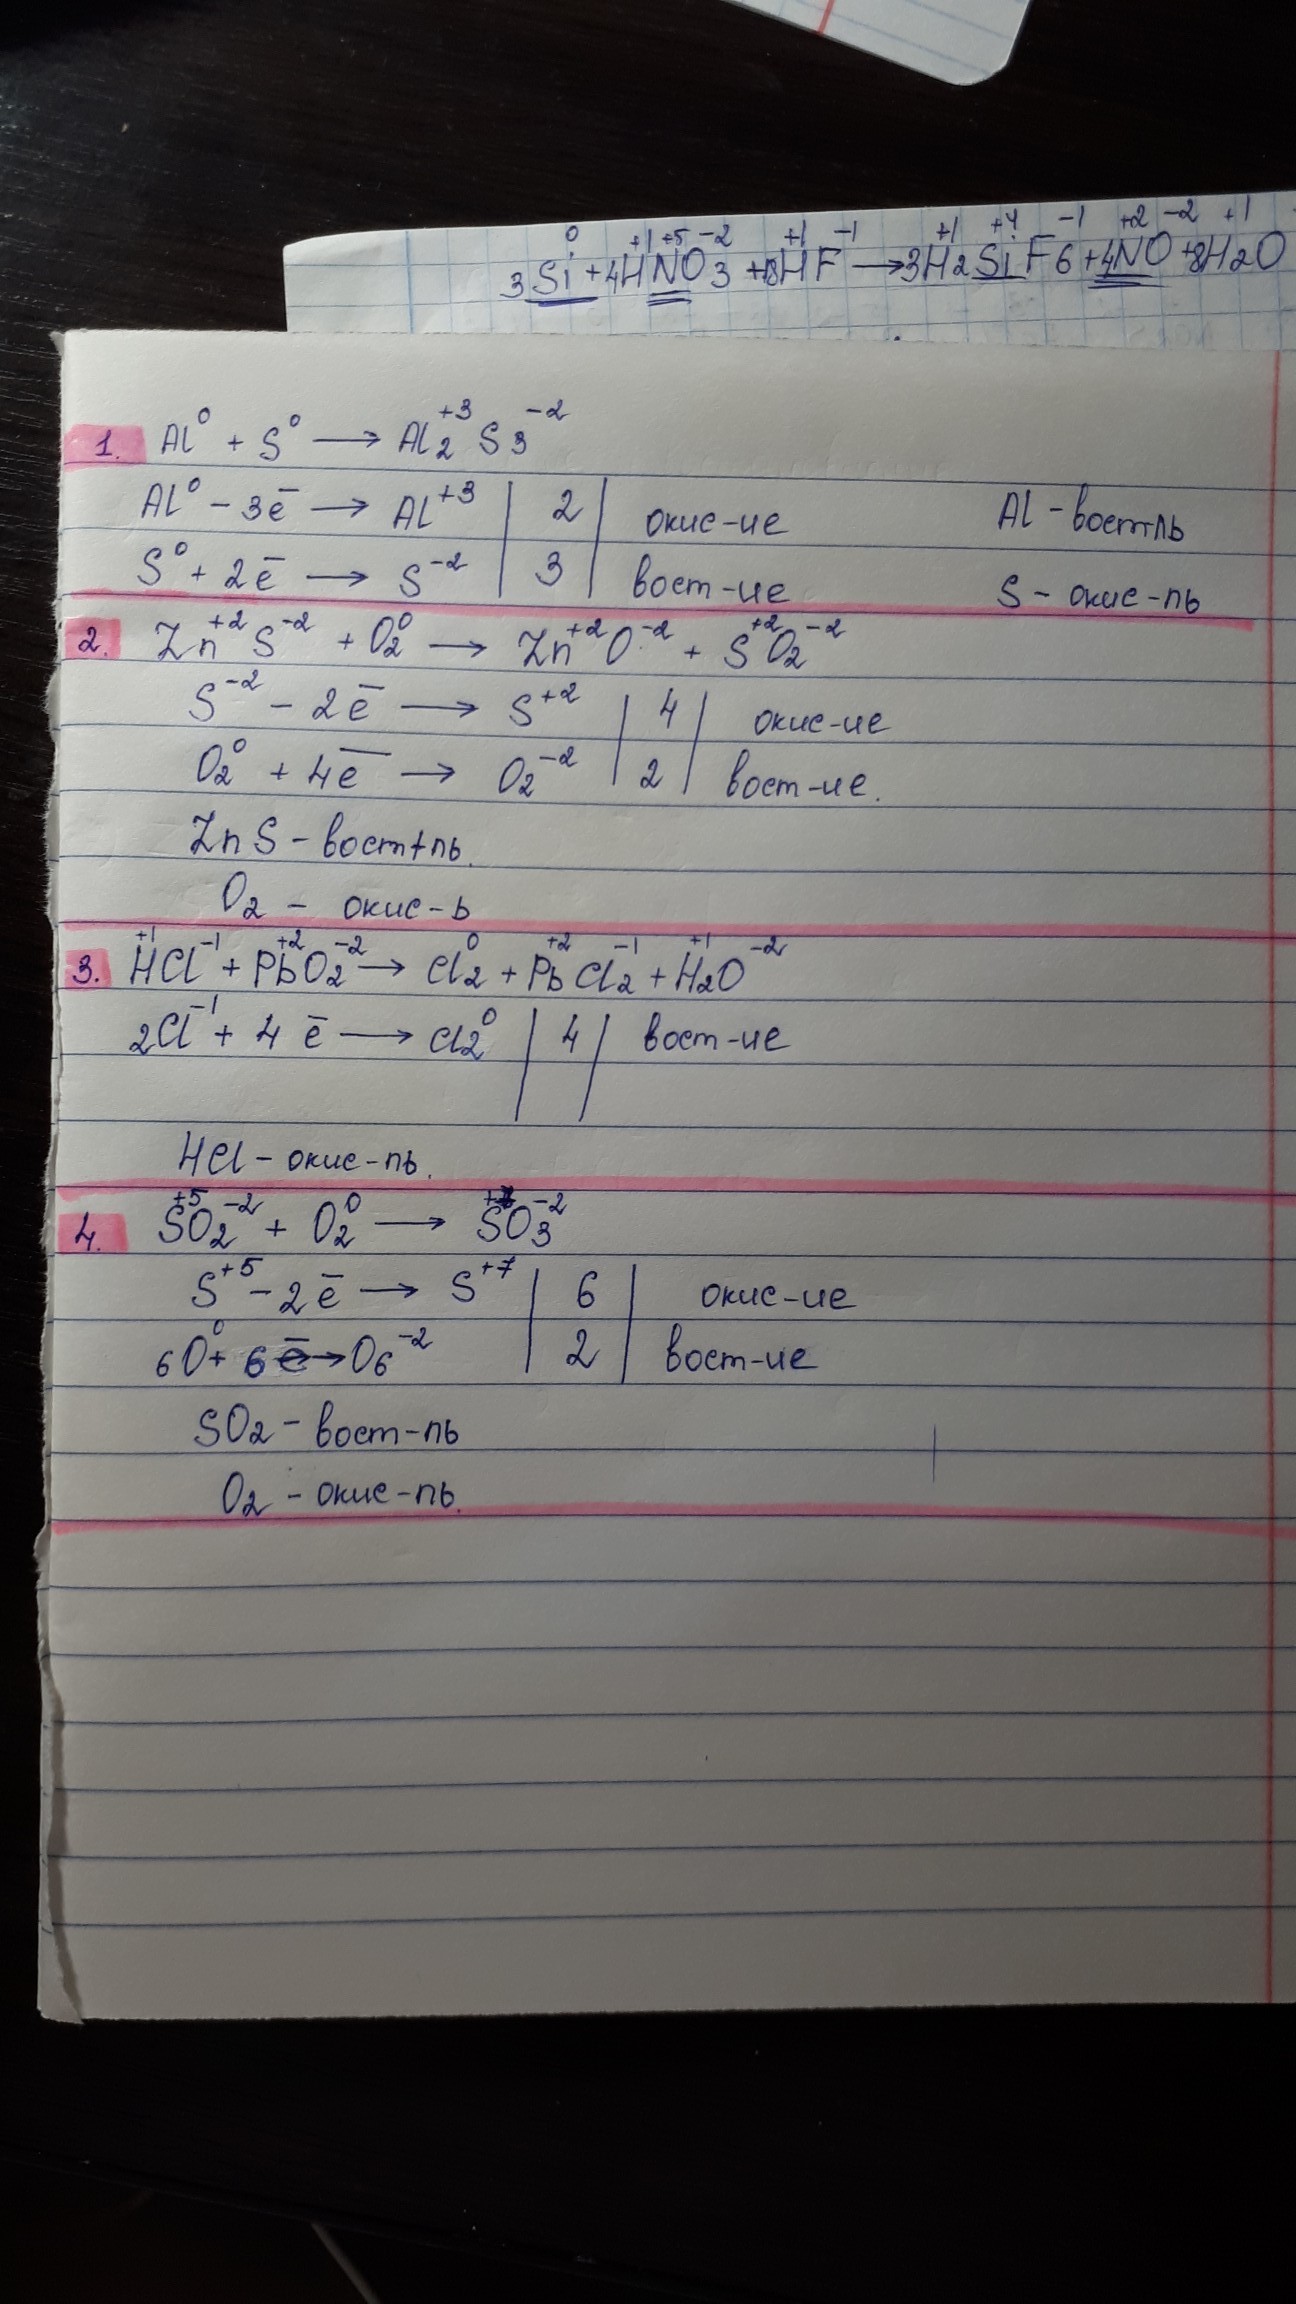 3Si⁰ + 4H⁺¹N⁺⁵O3⁻² + 18H⁺¹F⁻¹ → 3H2⁺¹Si⁺⁴F6⁻¹ + 4N⁺²O⁻² + 8H2⁺¹O
1. Al⁰ + S⁰ → Al2⁺³S3⁻²
Al⁰ - 3ē → Al⁺³ | 2 | окис-ие Al - вост-ль
S⁰ + 2ē → S⁻² | 3 | вост-ие S - окис-ль
2. Zn⁺²S⁻² + O2⁰ → Zn⁺²O⁻² + S⁺²O2⁻²
S⁻² - 2ē → S⁺² | 4 | окис-ие
O2⁰ + 4ē → O2⁻² | 2 | вост-ие.
ZnS - вост-ль.
O2 - окис-ь
3. H⁺¹Cl⁻¹ + Pb⁺²O2⁻² → Cl2⁰ + Pb⁺²Cl2⁻¹ + H2⁺¹O⁻²
2Cl⁻¹ + 4ē → Cl2⁰ | 4 | вост-ие
HCl - окис-ль.
4. S⁺⁵O2⁻² + O2⁰ → S⁺⁷O3⁻²
S⁺⁵ - 2ē → S⁺⁷ | 6 | окис-ие
6O⁰ + 6ē → O6⁻² | 2 | вост-ие
SO2 - вост-ль
O2 - окис-ль.